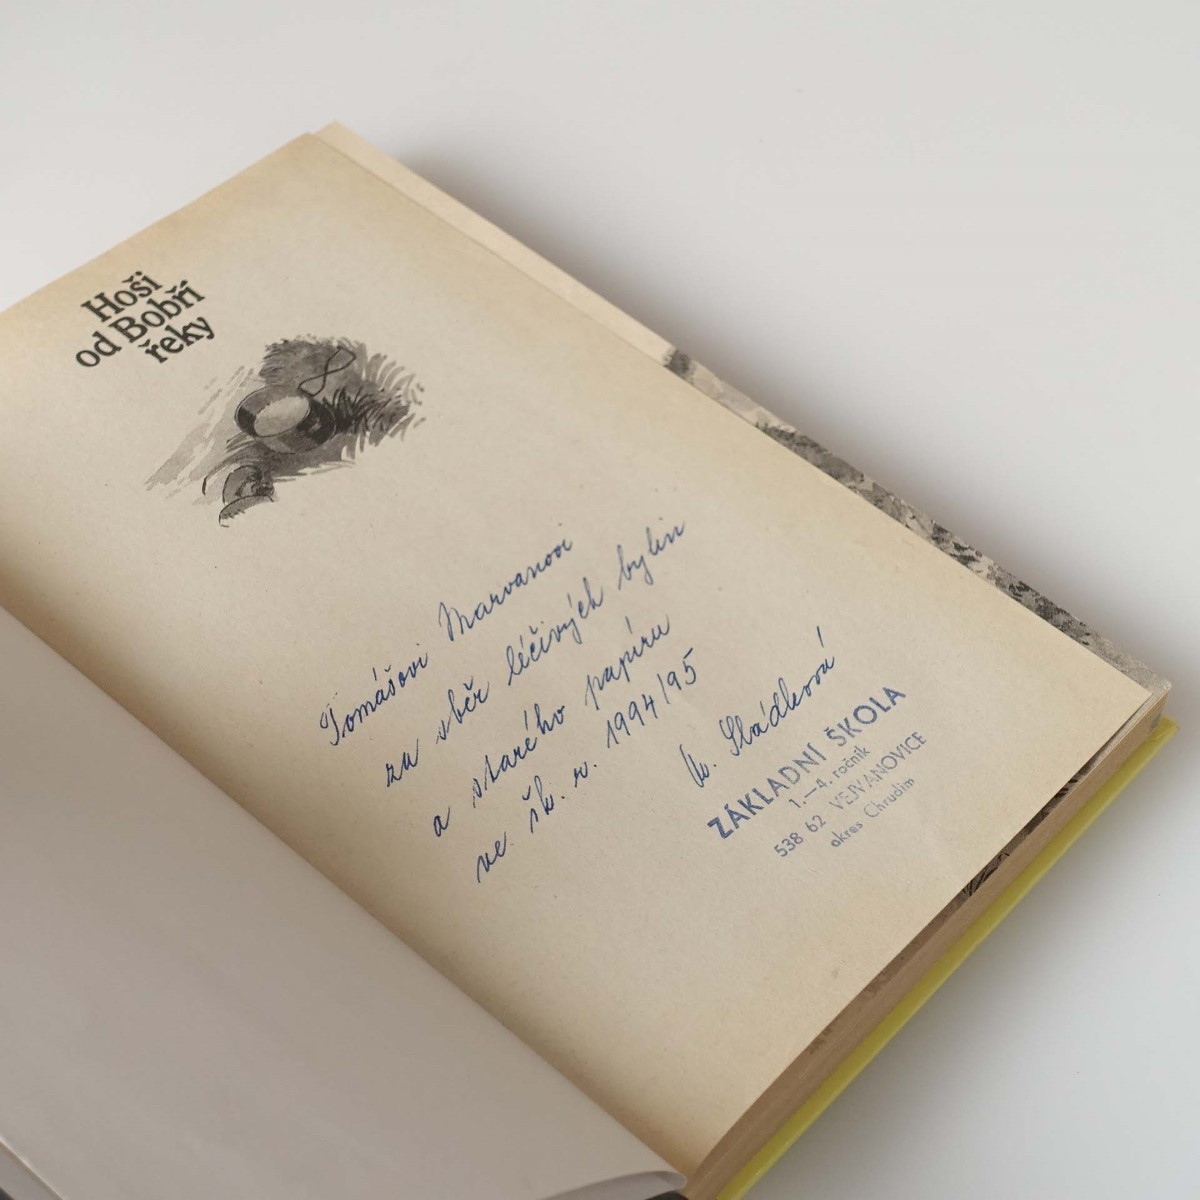 Hoši
od Bobří
řeky
Tomášovi Marvanovi
za sběr léčivých bylin
a starého papíru
ve šk. r. 1994/95
Sládková
ZÁKLADNÍ ŠKOLA
1.—4. ročník
538 62 VEJVANOVICE
okres Chrudim